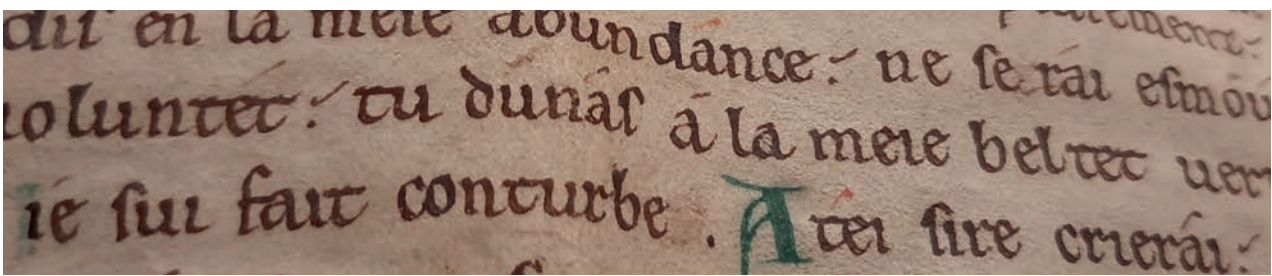 dis en la meie abundance: ne serai esmou
voluntet: tu dunas a la meie beltet ver
ie sui fait conturbe. A tei sire crierai: